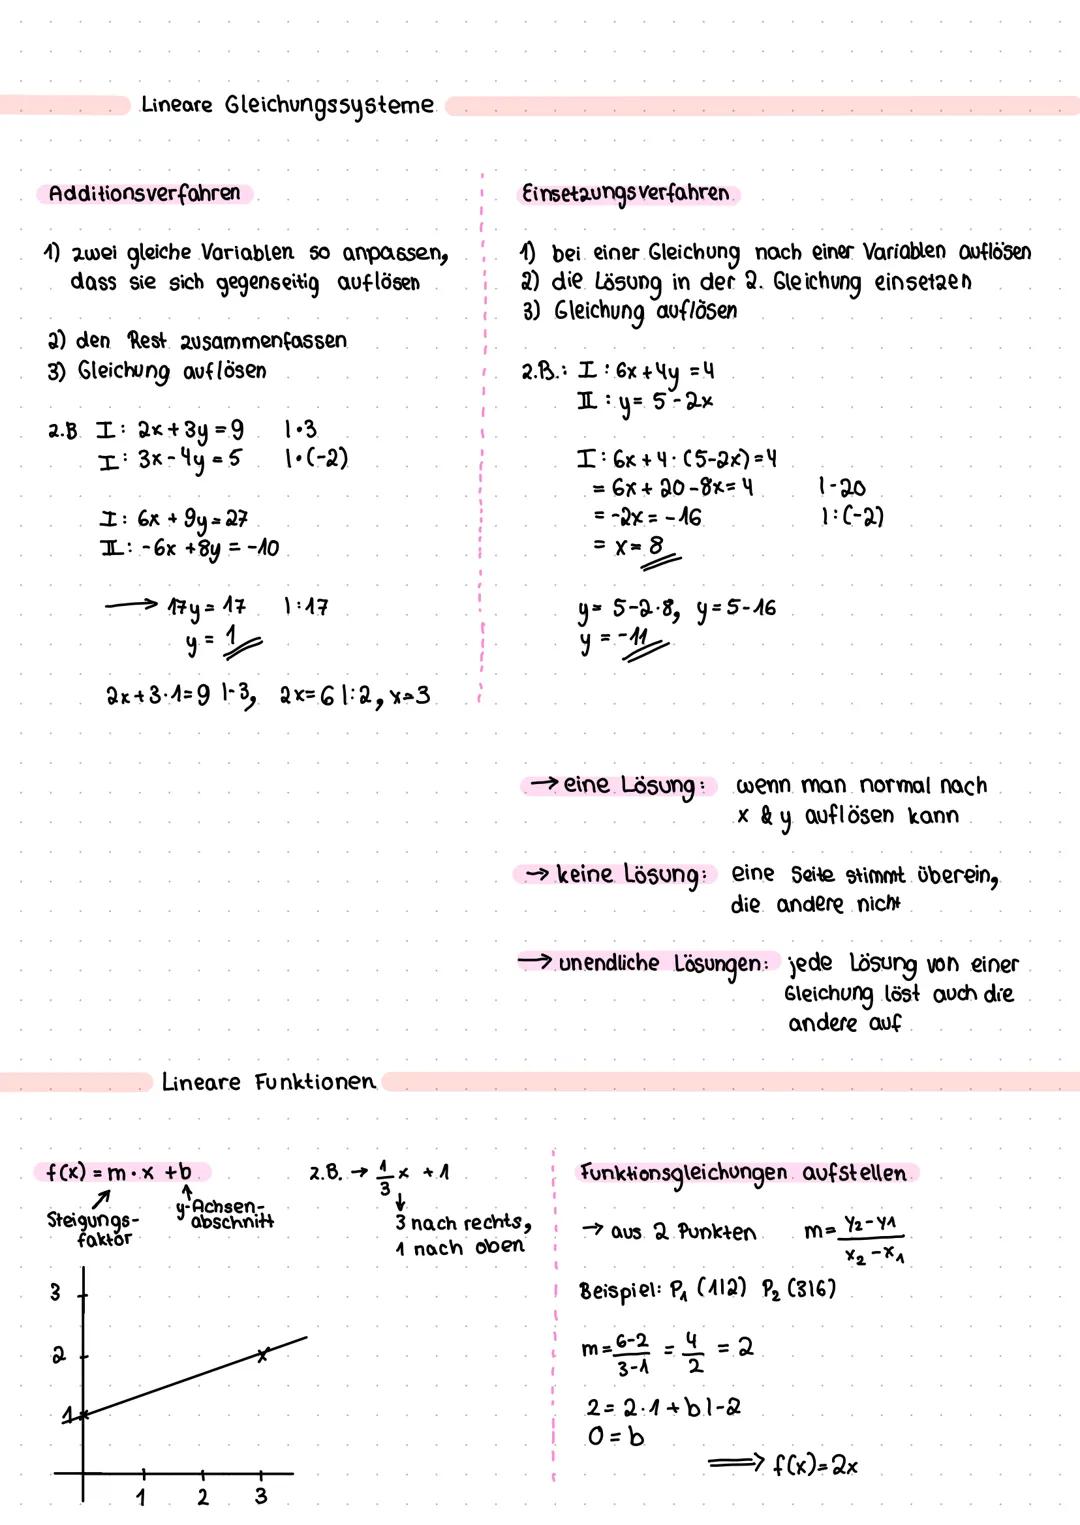 Lineare Gleichungssysteme
Additionsverfahren
1) zwei gleiche Variablen so anpassen,
dass sie sich gegenseitig auflösen
2) den Rest zusammenfassen
3) Gleichung auflösen
z.B. I: 2x+3y=9 |·3
I: 3x-4y=5 |·(-2)
I: 6x + 9y=27
II: -6x +8y = -10
→ 17y = 17 |:17
y = 1
2x+3·1=9 |-3, 2x=6 |:2, x=3
Einsetzungsverfahren
1) bei einer Gleichung nach einer Variablen auflösen
2) die Lösung in der 2. Gleichung einsetzen
3) Gleichung auflösen
z.B.: I: 6x+4y=4
II: y= 5-2x
I: 6x+4·(5-2x)=4
= 6x+20-8x=4 |-20
= -2x = -16 |:(-2)
= x=8
y= 5-2·8, y=5-16
y = -11
→ eine Lösung: wenn man normal nach
x & y auflösen kann
→ keine Lösung: eine Seite stimmt überein,
die andere nicht
→ unendliche Lösungen: jede Lösung von einer
Gleichung löst auch die
andere auf
Lineare Funktionen
f(x) = m·x +b
Steigungs-
faktor
y-Achsen-
abschnitt
z.B. → 1/3 x +1
3 nach rechts,
1 nach oben
3
2
1
1 2 3
Funktionsgleichungen aufstellen
→ aus 2 Punkten m= y2-y1 / x2-x1
Beispiel: P1 (1|2) P2 (3|6)
m= 6-2 / 3-1 = 4/2 = 2
2=2·1+b |-2
0=b
⟹ f(x)=2x